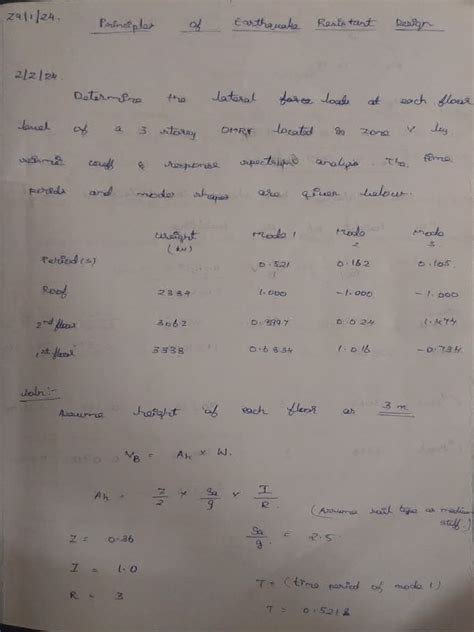 29/1/24. Principles of Earthquake Resistant Design
2/2/24.
Determine the lateral force loads at each floor
level of a 3 storey OMRF located in zone V by
seismic coeff & response spectrum analysis. The time
periods and modes shapes are given below.
Weight (kN) Mode 1 Mode 2 Mode 3.
Period (s) 0.521 0.162 0.105
Roof 2334 1.000 -1.000 -1.000
2nd floor 3062 0.024 1.474
1st floor 3338 0.6834 1.016 -0.734
Soln:-
Assume height of each floor as 3 m
VB = Ah x W.
Ah = Z/2 x Sa/g x I/R
(Assume soil type as medium stiff)
Z = 0.36 Sa/g = 2.5.
I = 1.0
R = 3 T = (time period of mode 1)
T = 0.521 s